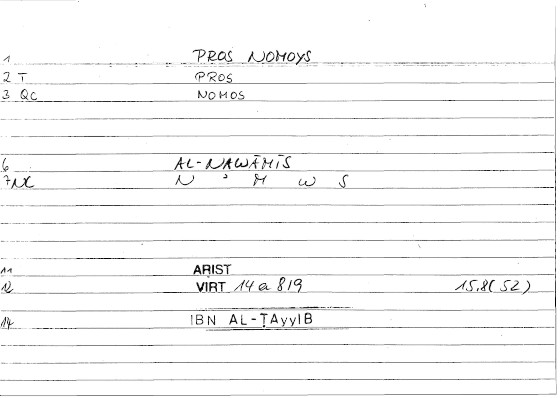 1 PROS NOMOYS
2 T PROS
3 QC NOMOS
6 AL-NAWĀMĪS
7 NC N ʾ M W S
11 ARIST
12 VIRT 14 a 8/9 15,8(52)
14 IBN AL-ṬAyyIB